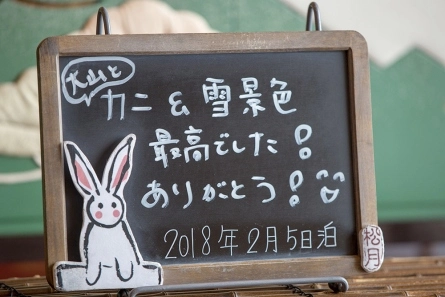 大山と
カニ & 雪景色
最高でした!
ありがとう!
2018年2月5日泊
松月